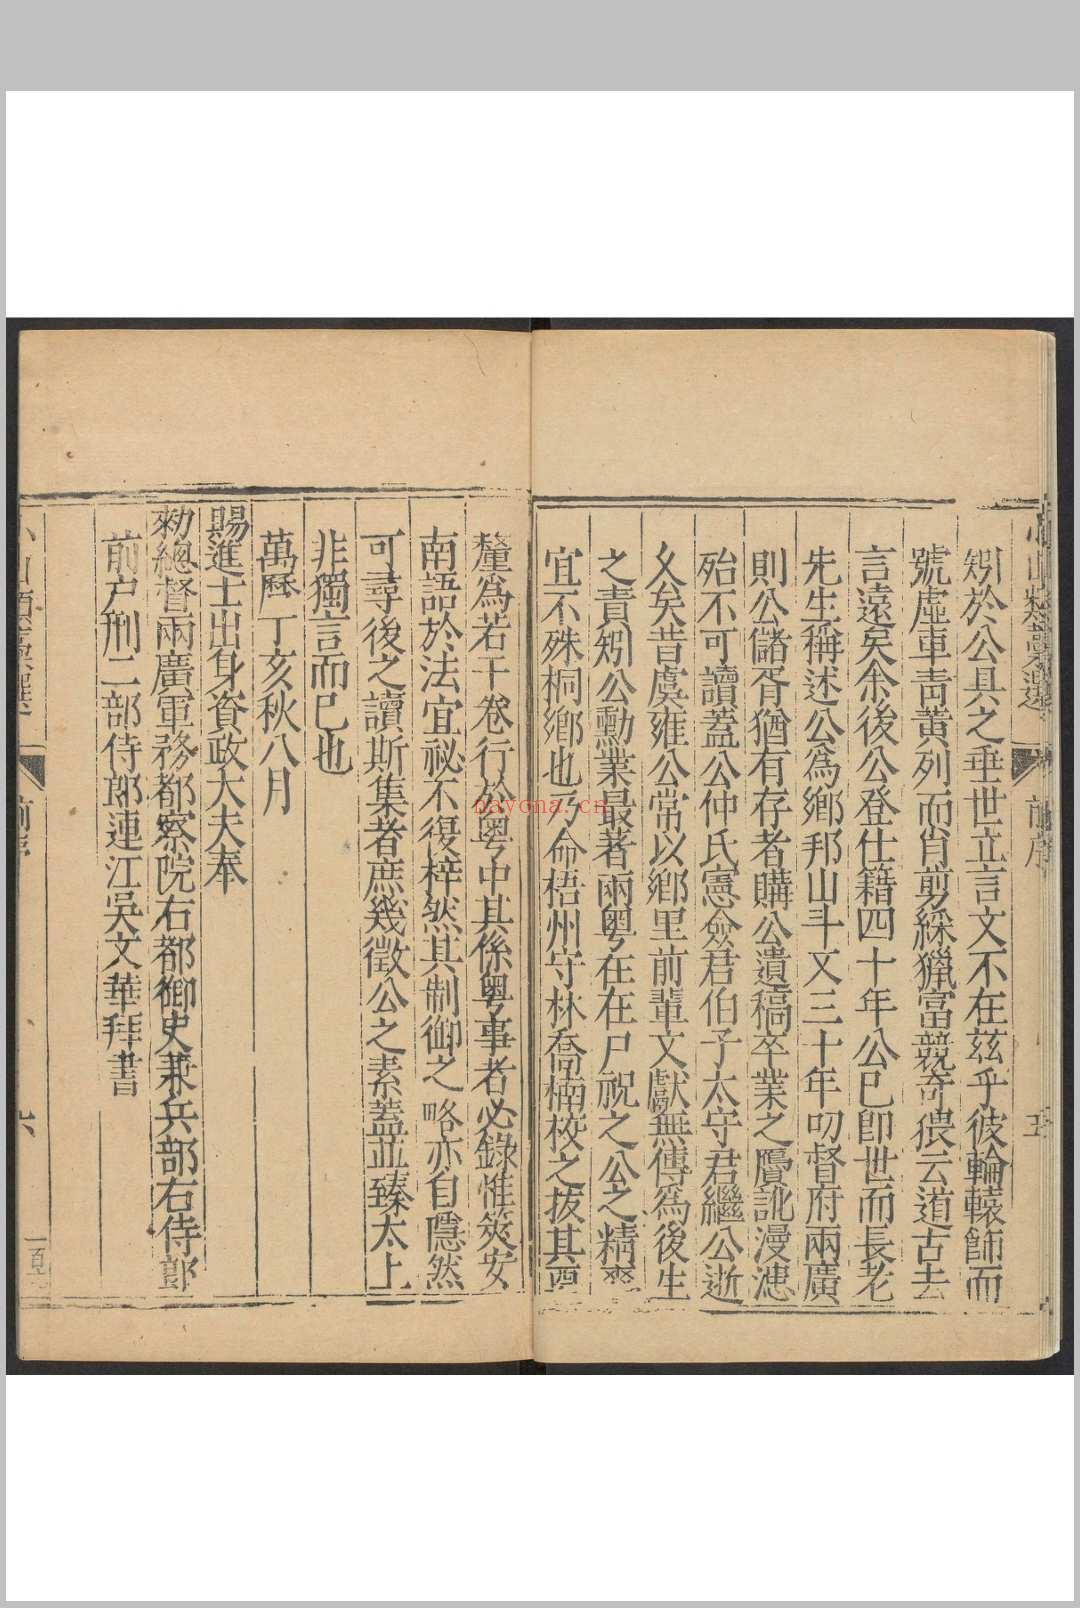 小山類藁選
前序
五
矧於公具之垂世立言文不在茲乎彼輪轅飾而
號虛車青黃列而肖剪綵獵富競奇猥云道古去
言遠矣余後公登仕籍四十年公已卽世而長老
先生稱述公為鄉邦山斗又三十年叨督府兩廣
則公儲胥猶有存者購公遺稿卒業之贗訛漫漶
殆不可讀蓋公仲氏憲僉君伯子太守君繼公逝
乂矣昔虞雍公常以鄉里前輩文獻無傳為後生
之責矧公勳業最著兩粵在在尸祝之公之精爽
宜不殊桐鄉也乃命梧州守林喬楠校之拔其
釐為若干卷行於粵中其係粵事者必錄惟筴安
南語於法宜祕不復梓然其制御之略亦自隱然
可尋後之讀斯集者庶幾徵公之素蓋並臻太上
非獨言而已也
萬曆丁亥秋八月
賜進士出身資政大夫奉
勑總督兩廣軍務都察院右都御史兼兵部右侍郎
前户刑二部侍郎連江吳文華拜書
六
nayona.cn